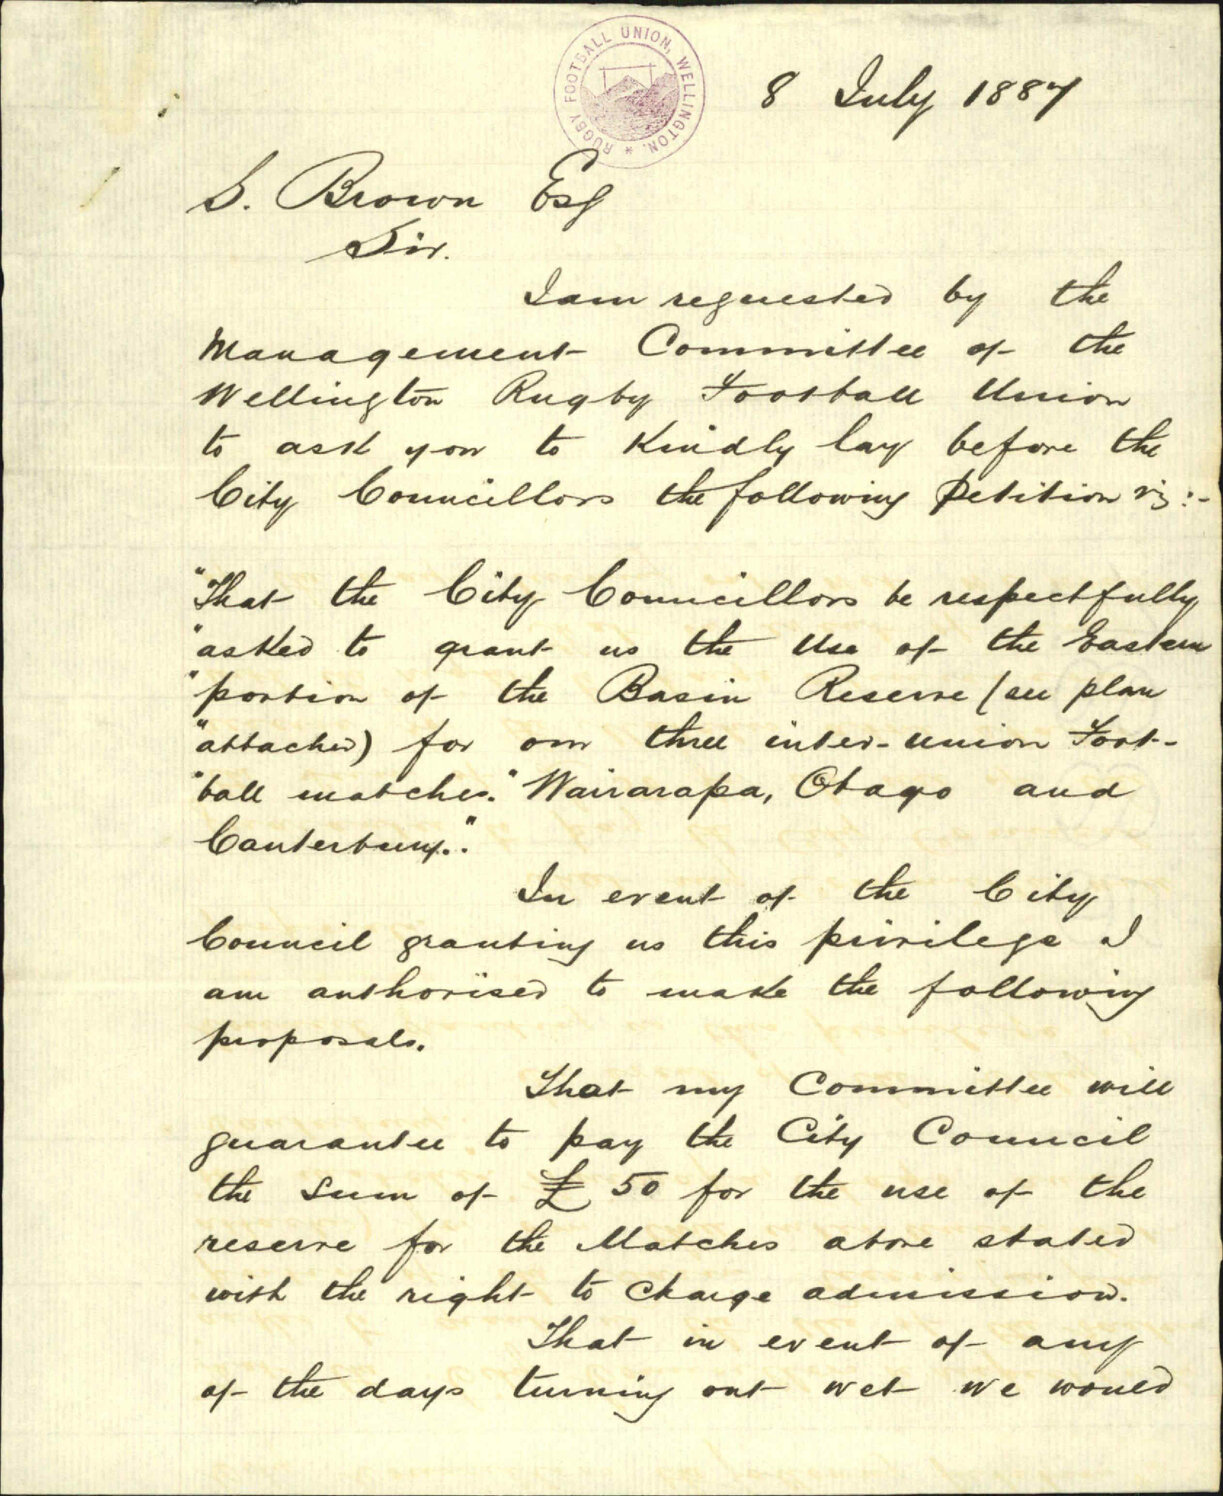 RUGBY FOOTBALL UNION, WELLINGTON. *
8 July 1887
S. Brown Esq
Sir.
I am requested by the
Management Committee of the
Wellington Rugby Football Union
to ask you to kindly lay before the
City Councillors the following Petition viz:-
"That the City Councillors be respectfully
"asked to grant us the use of the Eastern
"portion of the Basin Reserve (see plan
"attached) for our three inter-union Foot-
"ball matches." Wairarapa, Otago and
Canterbury."
In event of the City
Council granting us this privilege I
am authorised to make the following
proposals.
That my Committee will
guarantee to pay the City Council
the sum of £50 for the use of the
reserve for the Matches above stated
with the right to charge admission.
That in event of any
of the days turning out wet we would